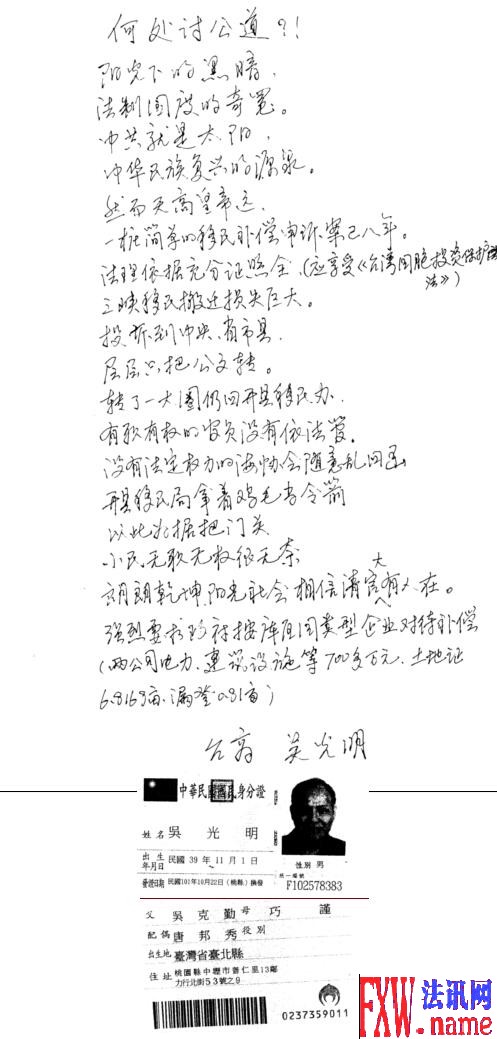 何处讨公道?!
阳光下的黑暗,
法制国度的奇冤。
中共就是太阳,
中华民族复兴的源泉。
然而天高皇帝远,
一桩简单的移民补偿申诉案已八年。
法理依据充分证照全(应享受《台湾同胞投资保护法》)
三峡移民搬迁损失巨大。
投诉到中央、省市县,
层层只把公文转。
转了一大圈仍回开县移民办,
有职有权的官员没有依法管。
没有法定权力的海协会随意乱回函
开县移民局拿着鸡毛当令箭
以此为据把门关
小民无职无权很无奈
朗朗乾坤阳光社会相信清官大有人在。
强烈要求政府按库周同类型企业对待补偿
(两公司电力、建筑设施等700多万元、土地证
6.8169亩、漏登0.81亩)
台商 吴光明
中華民國國民身分證
姓名 吳光明
出生年月日 民國39年11月1日
性別 男
發證日期 民國101年10月22日(桃縣)換發
統一編號
F102578383
父 吳克勤 母 巧謹
配偶 唐邦秀 役別
出生地 臺灣省臺北縣
住址 桃園縣中壢市普仁里13鄰
力行北街53號之9
0237359011
FXW 法讯网
.name